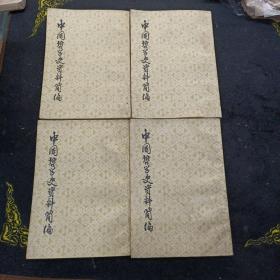 中国哲学史资料简编
中国哲学史资料简编
中国哲学史资料简编
中国哲学史资料简编